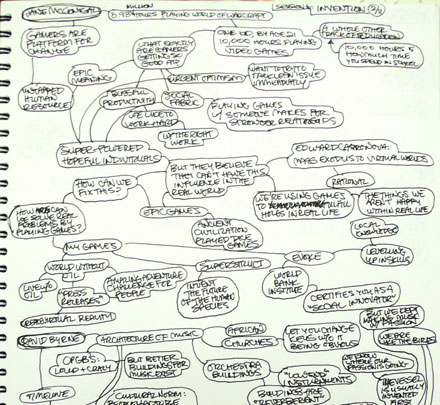 JANE McGONIGAL
5.93 MILLION HOURS PLAYING WORLD OF WARCRAFT
SESSION 4: INVENTION
GAMERS ARE
PLATFORM FOR
CHANGE
WHAT EXACTLY
ARE GAMERS
GETTING SO
GOOD AT?
ONE BY AGE 21
10,000 HOURS PLAYING
VIDEO GAMES
A WHOLE OTHER
TRACK OF EDUCATION
10,000 HOURS IS
HOW MUCH TIME
YOU SPEND IN SCHOOL
EPIC
MEANING
URGENT OPTIMISM
WANT TO TRY TO
TACKLE AN ISSUE
IMMEDIATELY
UNTAPPED
HUMAN
RESOURCE
BLISSFUL
PRODUCTIVITY
SOCIAL
FABRIC
WE LIKE TO
WORK HARD
AT THE RIGHT
WORK
PLAYING GAMES
W/ SOMEONE MAKES FOR
STRONGER RELATIONSHIPS
SUPER-POWERED
HOPEFUL INDIVIDUALS
EDWARD CASTRONOVA:
MASS EXODUS TO VIRTUAL WORLDS
BUT THEY BELIEVE
THEY CAN'T HAVE THIS
INFLUENCE IN THE
REAL WORLD
HOW CAN WE
FIX THIS?
RATIONAL
EPIC GAMES
WE'RE USING GAMES
TO FILL
HOLES IN REAL LIFE
THE THINGS WE
AREN'T HAPPY
WITHIN REAL LIFE
HOW CAN
WE SOLVE REAL
PROBLEMS BY
PLAYING GAMES?
ANCIENT
CIVILIZATION
PLAYED DICE
GAMES
LOCAL
KNOWLEDGE
MY GAMES
SUPERSTRUCT
EVOKE
LEVELLING
UP IN SKILLS
WORLD WITHOUT
OIL
LIVE W/O
OIL
"PRESS
RELEASES"
AMAZING ADVENTURE
CHALLENGE FOR
PEOPLE
INVENT
THE FUTURE
OF THE HUMAN
SPECIES
WORLD
BANK
INSTITUTE
CERTIFIES YOU AS A
"SOCIAL INNOVATOR"
CREATE VIRTUAL REALITY
DAVID BYRNE
ARCHITECTURE OF MUSIC
AFRICAN
CHURCHES
CBGB'S:
LOUD + CRAZY
BUT BETTER
BUILDINGS FOR
MUSIC EXIST
ORCHESTRA
BUILDINGS
"LOUDEND"
INSTRUMENTS
LET YOU CHANGE
KEYS W/O IT
BEING OBVIOUS
LIKE THE BIRDS
WE KNOW
WHERE OUR
PASSION IS GOING
THE VESSEL
IS USUALLY
INVENTED
FIRST
TIMELINE
CULTURAL NORM:
BUILDINGS ARE